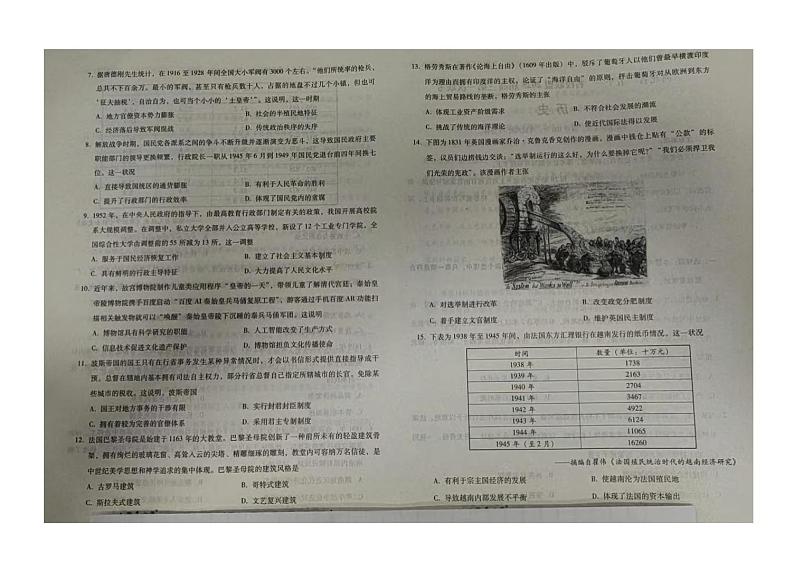 7. 据唐德刚先生统计，在1916至1928年间全国大小军阀有3000个左右。“他们所统率的枪兵，
总共不下百余万。最小的军阀，甚至只有枪兵数十人，占据的地盘不过几个小镇，但也可
‘征夫抽税’，自治自为，也可当个小小的‘土皇帝’”。这说明，这一时期
A. 地方官僚资本势力膨胀 B. 社会的半殖民地特征
C. 经济落后导致军阀混战 D. 传统政治秩序的失序
8. 解放战争时期，国民党各派系之间的争斗不断升级并逐渐演变为恶斗，这导致国民政府主要
职能部门的领导更换频繁，行政院长一职从1945年6月到1949年国民党退台前四年间换七
位。这一状况
A. 直接导致国统区的通货膨胀 B. 有利于人民革命的胜利
C. 提升了行政部门的行政效率 D. 体现了国民党内的腐腐
9. 1952年，在中央人民政府的指导下，由最高教育行政部门制定有关的政策，我国开展高校院
系大规模调整。在调整中，私立大学全部并入公立高等学校，新设了12个工业专门学院，全
国综合性大学由调整前的55所减为13所。这一调整
A. 服务于国民经济恢复工作 B. 建立了社会主义基本制度
C. 具有鲜明的行政主导特征 D. 大力提高了人民文化水平
10. 近年来，故宫博物院制作儿童类应用程序“皇帝的一天”，带领儿童了解清代宫廷；秦始皇
帝陵博物院携手百度启动“百度AR秦始皇兵马俑复原工程”，游客通过手机百度AR功能扫
描相关触发物就可以“唤醒”秦始皇帝陵下沉睡的秦兵马俑军团。这说明
A. 博物馆具有科学研究的职能 B. 人工智能改变了生产方式
C. 信息技术促进文化遗产保护 D. 博物馆担负文化传播使命
11. 波斯帝国的国王只有在行省事务发生某种异常情况时，才会以名信形式提供直接指导或干
预。总督在辖地内基本拥有司法自主权力，部分行省总督自己指定所辖城市的长官，免除某
些城市的税收。这说明，波斯帝国
A. 国王对地方事务的干涉有限 B. 实行封君封臣制度
C. 拥有着较为完善的官僚体系 D. 采用君主专制制度
12. 法国巴黎圣母院是始建于1163年的大教堂。巴黎圣母院创新了一种前所未有的轻盈建筑骨
架，拥有绚烂的玻璃花窗、高耸入云的尖塔、精雕细琢的雕刻，教堂内可容纳万名信徒，是
中世纪美学思想和神学追求的集中体现。巴黎圣母院的建筑风格是
A. 古罗马建筑 B. 哥特式建筑
C. 斯拉夫式建筑 D. 文艺复兴建筑
13. 格劳秀斯在著作《论海上自由》（1609年出版）中，驳斥了葡萄牙人以他们曾最早横渡印度
洋为理由而拥有印度洋的主权，论证了“海洋自由”的原则，抨击葡萄牙对从欧洲到东方
的海上贸易路线的垄断。格劳秀斯的主张
A. 体现工业资产阶级需求 B. 不符合社会发展的潮流
C. 挑战了传统的海洋理论 D. 使近代国际法得以发展
14. 下图为1831年英国漫画家乔治·克鲁克香克创作的漫画。漫画中钱仓上贴有“公款”的标
签，议员们边捞钱边交谈：“选举制运行的这么好，为什么要换掉它呢？”“我们必须捍卫我
们光荣的宪政”。该漫画作者主张
A. 对选举制进行改革 B. 改变政党分肥制度
C. 着手建立文官制度 D. 维护英国民主制度
15. 下表为1938年至1945年间，由法国东方汇理银行在越南发行的纸币情况。这一状况
时间 数量（单位：十万元）
1938年 1738
1939年 2163
1940年 2704
1941年 3467
1942年 4922
1943年 6124
1944年 11065
1945年（至2月） 16260
——摘编自瞿伟《法国殖民统治时代的越南经济研究》
A. 有利于宗主国经济的发展 B. 使越南沦为法国殖民地
C. 导致越南内部发展不平衡 D. 体现了法国的资本输出